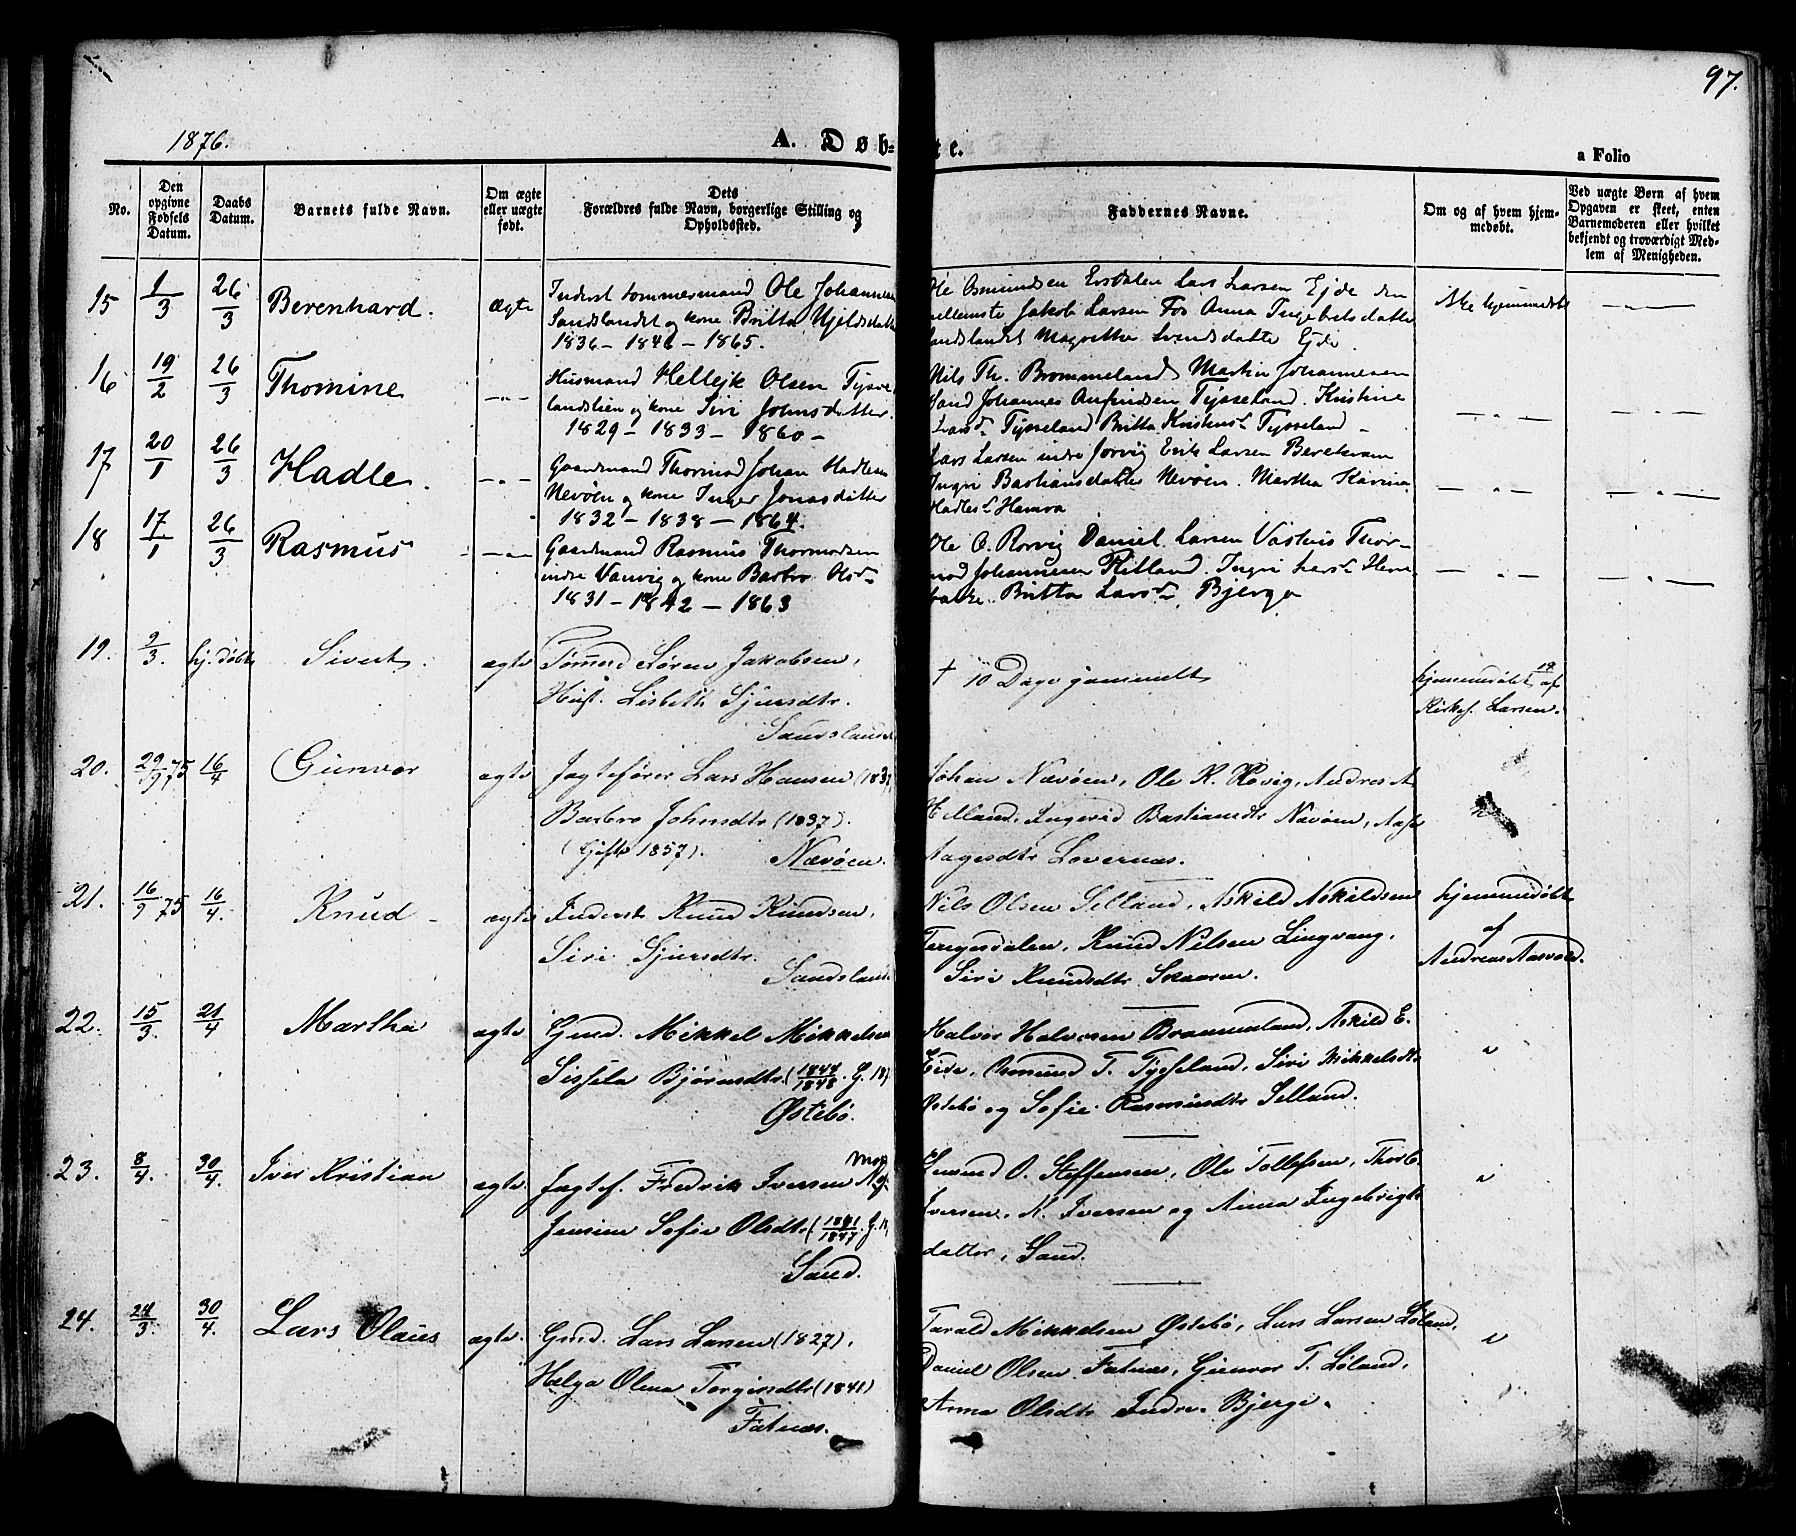 97.
1876.
A. Døb-
te.
a Folio
No.
Den opgivne Fødsels Datum.
Daabs Datum.
Barnets fulde Navn.
Om ægte eller uægte født.
Dets Forældres fulde Navn, borgerlige Stilling og Opholdssted.
Faddernes Navne.
Om og af hvem hjemmedøbt.
Ved uægte Børn af hvem Opgaven er skeet, enten Barnemoderen eller hvilket bekjendt og troværdigt Medlem af Menigheden.
15 1/3 26/3 Berenhard. ægte Inderst tømmermand Ole Johannesen
Sandslandet og kone Britta
1836 - 1842 - 1865.
Ole Osmundsen Ersdalen Lars Larsen Ejde den
Jakob Larsen Fos Anna Ingebretsdatter
Sandslandet Magrethe Svendsdatter Ejde.
Ikke hjemmedøbt
16 19/2 26/3 Thomine - " - Husmand Hellejk Olsen Tysse-
landslien og kone Siri Johnsdatter.
1829 - 1833 - 1860 -
Nils Th. Brommeland Martin Johannesen
Sand Johannes Anfindsen Tysseland. Kristine
Larsd. Tysseland Britta Kristens. Tysseland -
17 20/1 26/3 Hadle. - " - Gaardmand Thormod Johan Hadlesen
Nevøen og kone Inger Jonasdatter
1832 - 1838 - 1864.
Lars Larsen indre Jorvig Erik Larsen Berekvam
Ingri Bastiansdatter Nevøen. Martha Karina
18 17/1 26/3 Rasmus - " - Gaardmand Rasmus Thormodsen
indre Vanvig og kone Barbro Olsd.
1831 - 1842 - 1863
Ole O. Rorvig Daniel Larsen Vastvis Thor-
mod Johannesen Ritland. Ingri Larsd.
Britta Larsd. Bjerge
19. 9/3. hj. døbt Sivert. ægte Tømmerd Søren Jakobsen,
Hust. Lisbeth Sjursdtr.
Sandslandet
† 10 Dage gammelt
hjemmedøbt 19 af
Kirkes. Larsen.
20. 29/9 75 16/4 Gunvor ægte Jagtefører Lars Hansen (183
Barbro Johnsdtr (1837).
(Gifte 1857). Nævøen.
Johan Nævøen, Ole K. Rovig, Andreas A
Helland, Ingerid Bastiansdtr Nævøen, Aase
Aagesdtr Lovernæs.
21. 16/9 75 16/4. Knud - ægte Inderst Knud Knudsen,
Siri Sjursdtr.
Sandslandet
Nils Olsen Selland, Askild Askildsen
Tengesdalen, Knud Nilsen Lingvang,
Siri Knudsdtr Skaaren.
hjemmedøbt
af
Andreas Aasvold.
22. 15/3. 21/4 Martha ægte Gmd. Mikkel Mikkelsen
Sissela Bjørnsdtr (1844/1848. G. 18
Østebø.
Halvor Halvorsen Brommeland, Askild E.
Eide, Osmund T. Tysseland, Siri Mikkelsdtr
Østebø og Sofie Rasmusdtr Selland.
"
23. 8/4. 30/4. Iver Kristian ægte Jagtef. Fredrik Iversen
Jensine Sofie Olsdtr (1841/1847. G. 18
Sand.
O. Steffensen, Ole Tollefsen, Thorb.
Iversen, N. Iversen og Anna Ingebrigts
datter, Sand.
"
24. 24/3. 30/4. Lars Olaus ægte. Gmd. Lars Larsen (1827),
Helga Olena Torgirsdtr (1841)
Fatnæs.
Tarald Mikkelsen Østebø, Lars Larsen Løland,
Daniel Olsen Fatnæs, Gunvor T. Løland,
Anna Olsdtr Indre Bjerge.
"